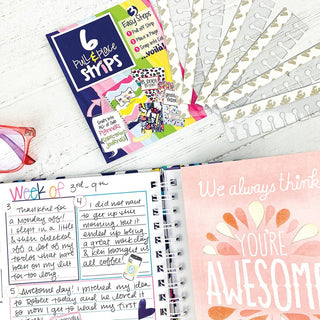 6
Pull & Place
STRIPS
3
Easy Steps
1 Pull off Strip
2 Place a Page
3 Snap into Coil
...voilà!
Week of 3rd-9th
3 Thankful for
a Monday off!
I slept in a little
& then checked
off a lot of my
to-dos that have
been on my list
for too long
4 I did not want
to get up this
morning, but it
ended up being
a great work day
& Ken brought us
all coffee!
5 Awesome day! I pitched my idea
to Robert today and he loved it
so now I get to lead my first
We always think
YOU'RE
AWESOME